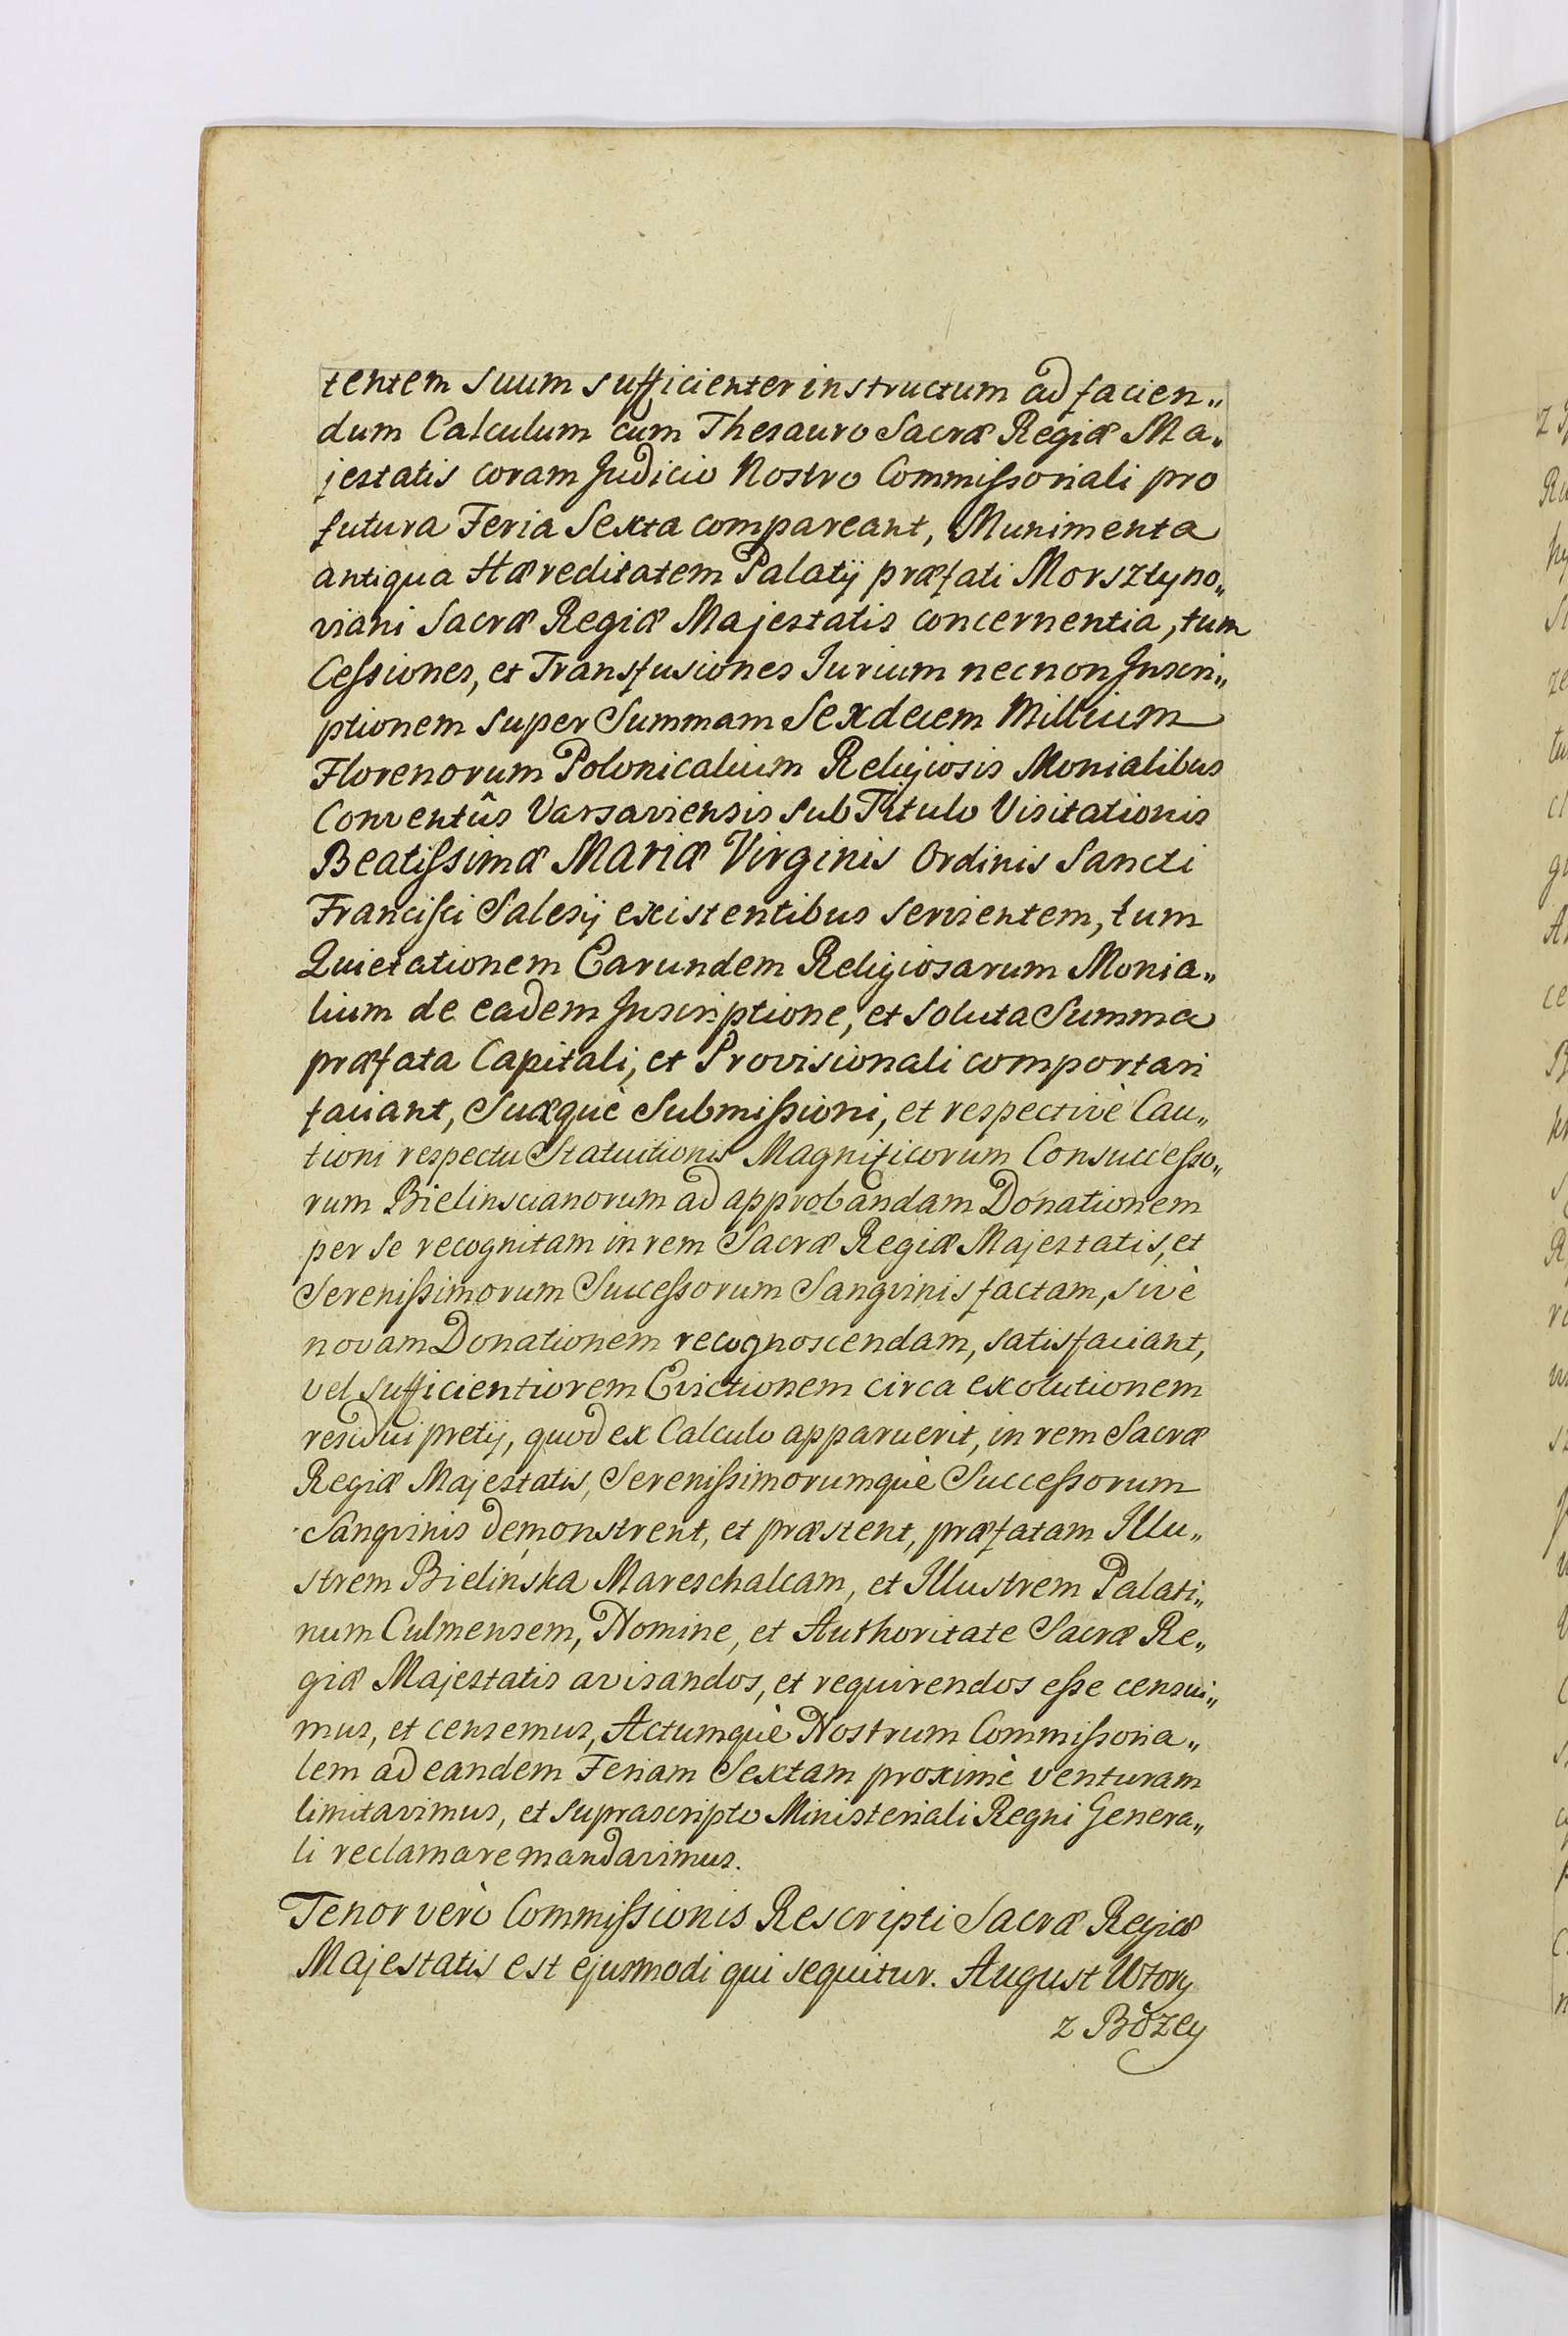 tentem suum sufficienter instructum ad facien„
dum Calculum cum Thesauro Sacræ Regiæ Ma„
jestatis coram Judicio Nostro Commiſsoriali pro
futura Feria Sexta compareant, Munimenta
antiqua Hæreditatem Palatij præfati Morsztyno„
viani Sacræ Regiæ Majestatis concernentia, tum
Ceſsiones, et Transfusiones Jurium necnon Inscri„
ptionem super Summam Sexdecem Millium
Florenorum Polonicalium Religiosis Monialibus
Conventûs Varsaviensis sub Titulo Visitationis
Beatiſsimæ Mariæ Virginis Ordinis Sancti
Franciſci Salesij existentibus servientem, tum
Quietationem Earundem Religiosarum Monia„
lium de eadem Inscriptione, et soluta Summa
præfata Capitali, et Provisionali comportari
faciant, Suæquè Submiſsioni, et respectivè Cau„
tioni respectu Statuitionis Magnificorum Consucceſso„
rum Bielinscianorum ad approbandam Donationem
per se recognitam in rem Sacræ Regiæ Majestatis, et
Sereniſsimorum Succeſsorum Sangvinis factam, sivè
novam Donationem recognoscendam, satisfaciant,
vel sufficientiorem Evictionem circa exolutionem
residui pretij, quod ex Calculo apparuerit, in rem Sacræ
Regiæ Majestatis, Sereniſsimorumquè Succeſsorum
Sangvinis demonstrent, et præstent, præfatam Illu„
strem Bielińska Mareschalcam, et Illustrem Palati„
num Culmensem, Nomine, et Authoritate Sacræ Re„
giæ Majestatis avisandos, et requirendos eſse censui„
mus, et censemus, Actumquè Nostrum Commiſsoria„
lem ad eandem Feriam Sextam proximè venturam
limitavimus, et suprascripto Ministeriali Regni Genera„
li reclamare mandavimus.
Tenor verò Commiſsionis Rescripti Sacræ Regiæ
Majestatis est ejusmodi qui sequitur. August Wtory
z Bożey